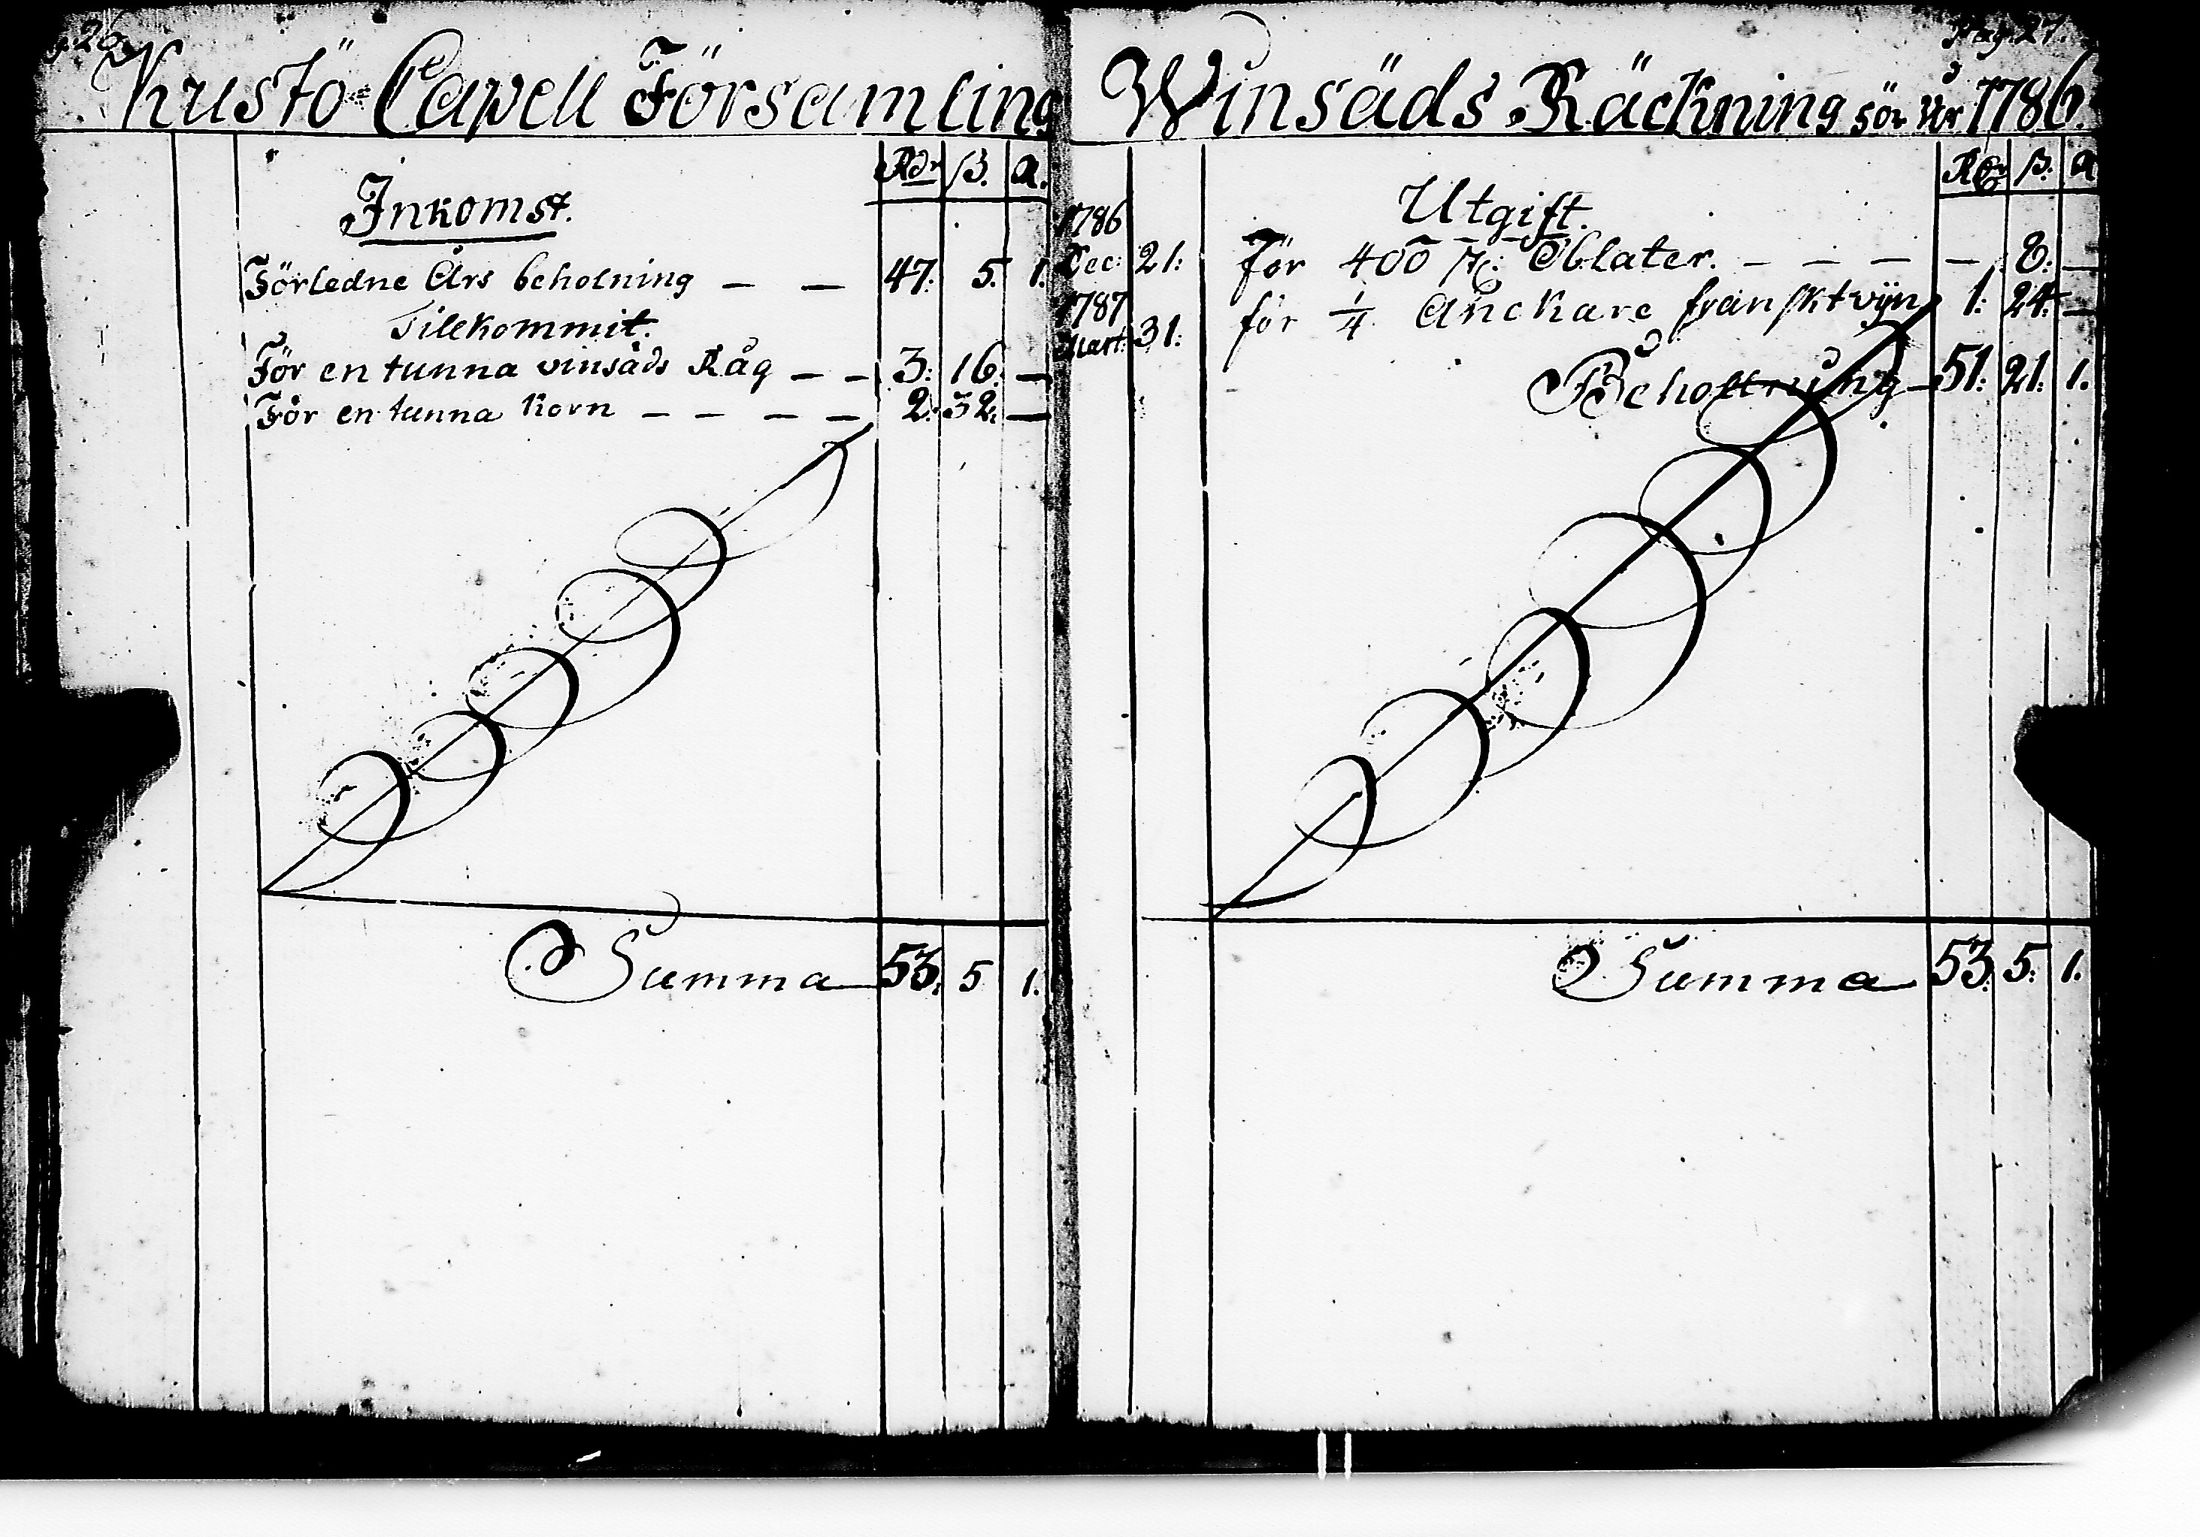 g. 26.
Kustö Capell Församling
Rdr ß. R.
Inkomst.
Förledne Års beholning — — 47: 5. 1.
Tillkommit.
För en tunna vinsäds Råg — — 3: 16. —
För en tunna Korn — — — — — 2: 32: —
Summa 53: 5 1.
Pag. 27.
Winsäds Räckning för År 1786.
Rdr ß. R
Utgift.
1786
Dec: 21: För 400 st: Oblater. — — — — 8: —
1787
Mart: 31: för 1/4 Anckare franskt vijn 1: 24: —
Behollning 51: 21: 1.
Summa 53: 5: 1.